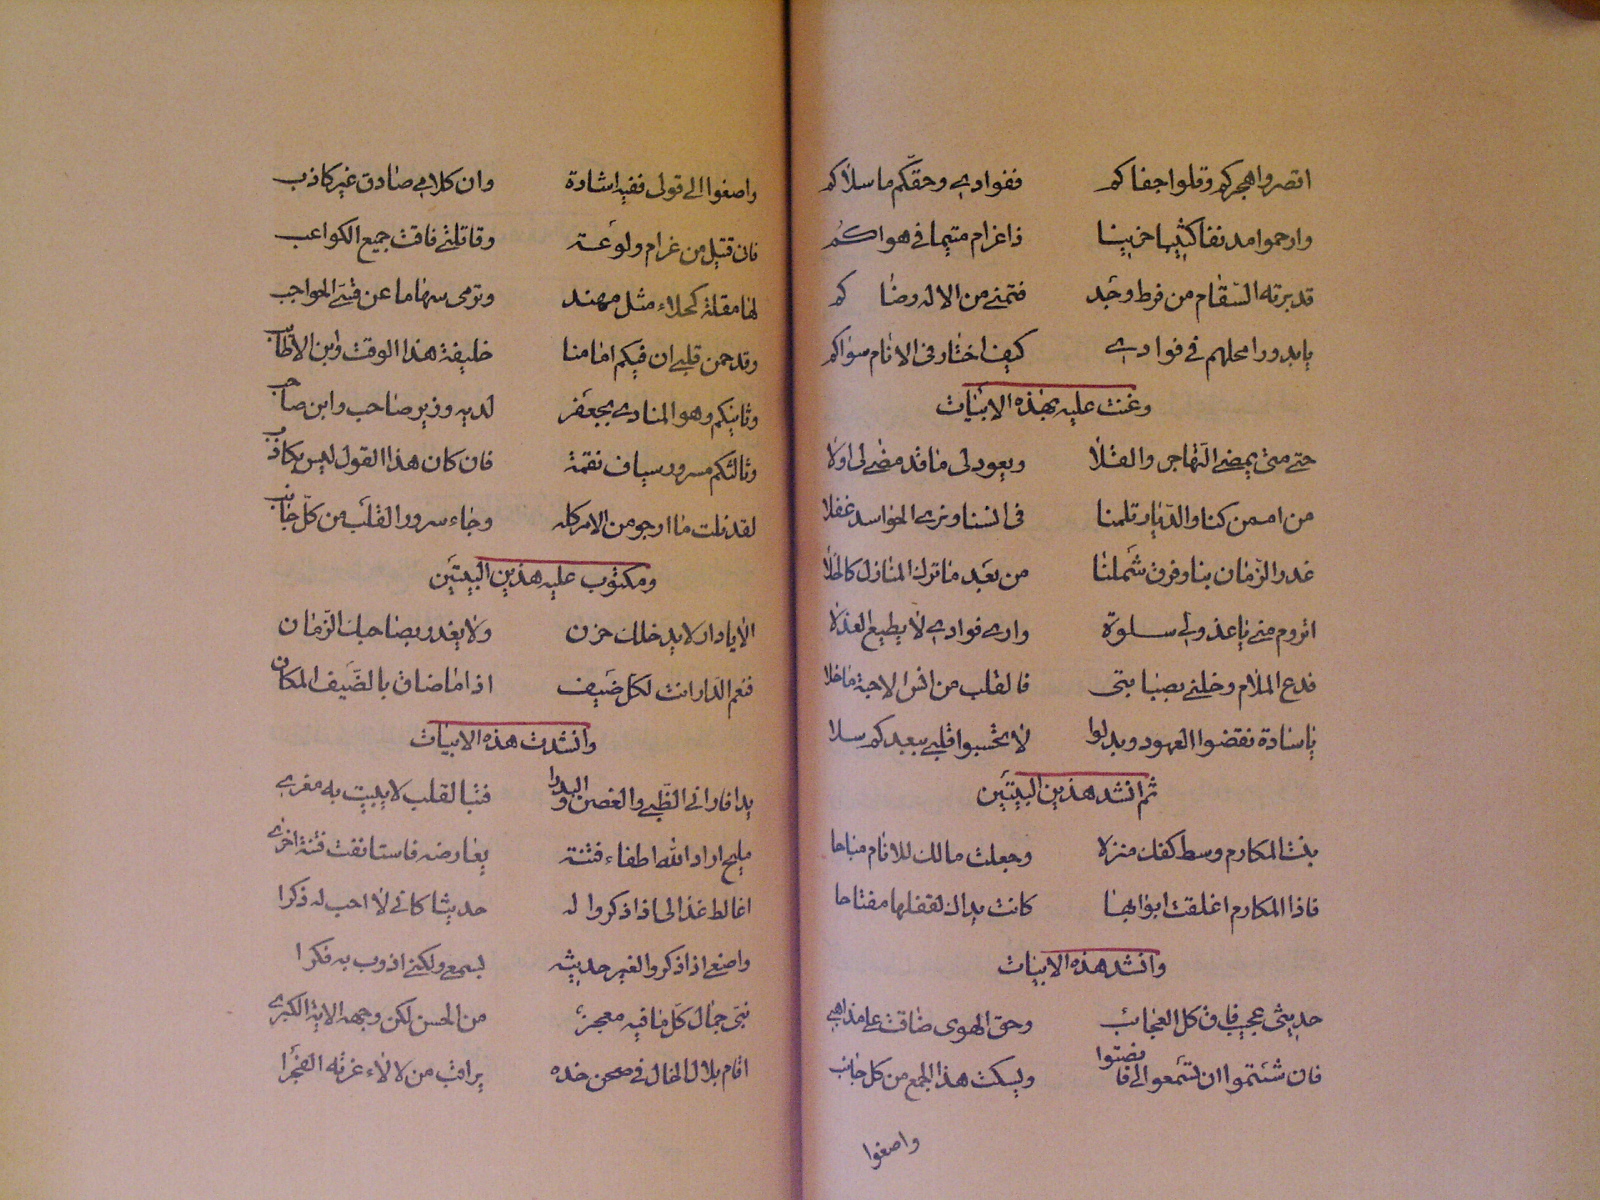 اقصروا هجركم وقلوا جفاكم ففوادي وحقكم ما سلاكم
وارحموا مدنفا كئيبا حزينا ذا غرام متيما في هواكم
قد برته السقام من فرط وجد فتمنى من الاله رضا كم
يا بدورا محلهم في فوادي كيف اختار في الانام سواكم
وغنت عليه بهذه الابيات
حتى متى يمضي التهاجر والقلا ويعود لي ما قد مضى لي اولا
من امس كنا والديار تلمنا في انسنا ونرى الحواسد غفلا
غدر الزمان بنا وفرق شملنا من بعد ما ترك المنازل كالخلا
اتروم مني يا عذولي سلوة وارى فوادي لا يطيع العذلا
فدع الملام وخلني بصبابتي فالقلب من انس الاحبة ما خلا
يا سادة نقضوا العهود وبدلوا لا تحسبوا قلبي ببعدكم سلا
ثم انشد هذين البيتين
بنت المكارم وسط كفك منزلا وجعلت مالك للانام مباحا
فاذا المكارم اغلقت ابوابها كانت يداك لقفلها مفتاحا
وانشد هذه الابيات
حديثي عجيب فاق كل العجائب وحق الهوى ضاقت علي مذاهبي
فان شئتموا ان تسمعوا لي فانصتوا ويسكت هذا الجمع من كل جانب
واصغوا
واصغوا الى قولي ففيه اشارة وان كلامي صادق غير كاذب
فاني قتيل من غرام ولوعة وقاتلتي فاقت جميع الكواعب
لها مقلة كحلاء مثل مهند وترمي سهاما عن قسي الحواجب
وقد حس قلبي ان فيكم امامنا خليفة هذا الوقت وابن الاطائب
وثانيكم وهو المنادى بجعفر لديه وزير صاحب وابن صاحب
وثالثكم مسرور سياف نقمة فان كان هذا القول ليس بكاذب
لقد نلت ما ارجو من الامر كله وجاء سرور القلب من كل جانب
ومكتوب عليه هذين البيتين
الا يا دار لا يدخلك حزن ولا يغدر بصاحبك الزمان
فنعم الدار انت لكل ضيف اذا ما ضاق بالضيف المكان
وانشدت هذه الابيات
بدا فاراني الظبي والغصن والبدرا فتبا لقلب لا يبيت به مغرى
مليح اراد الله اطفاء فتنة بعارضه فاستانفت فتنة اخرى
اغالط عذالي اذا ذكروا له حديثا كاني لا احب له ذكرا
واصغي اذا ذكروا لغير حديثه بسمعي ولكني اذوب به فكرا
نبي جمال كل ما فيه معجز من الحسن لكن وجهه الاية الكبرى
اقام بلال الخال في صحن خده يراقب من لالاء غرته الفجرا